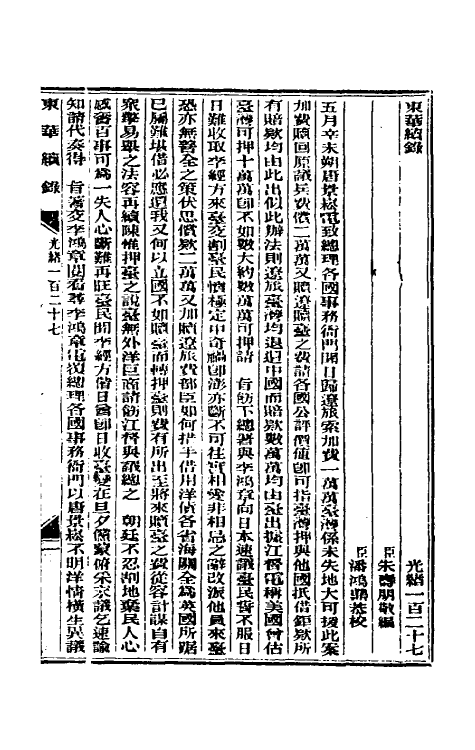 東華續錄
光緒一百二十七
臣朱壽朋敬編
臣潘鴻鼎恭校
五月辛未朔唐景崧電致總理各國事務衙門聞日歸遼旅索加費一萬萬臺灣係未失地大可援此案
加費贖回原議兵費償二萬萬又贖遼贖臺之費請各國公評價值即可指臺灣押與他國抵借鉅款所
有賠款均由此出似此辦法則遼旅臺灣均退還中國而賠款數萬萬均由臺出據江督電稱美國會估
臺灣可押十萬萬即不如數大約數萬萬可押請 旨飭下總署與李鴻章向日本速議臺民誓不服日
日難收取李經方來臺交割臺民憤極定中奇禍即澎亦斷不可往實相愛非相忌之辭改派他員來臺
恐亦無善全之策伏思償款二萬萬又加贖遼旅費部臣如何措手借用洋債各省海關全為英國所踞
已屬難堪借必應還我又何以立國不如贖臺而轉押臺則費有所出至將來贖臺之費從容計謀自有
眾擎易舉之法容再續陳惟押臺之說臺無外洋巨商請飭江督與議總之 朝廷不忍割地棄民人心
感奮百事可為一失人心斷難再旺臺民聞李經方偕日酋即日收臺變在旦夕儻蒙俯采末議乞速諭
知請代奏得 旨著交李鴻章閱看尋李鴻章電復總理各國事務衙門以唐景崧不明洋情橫生異議
東華續錄
光緒一百二十七